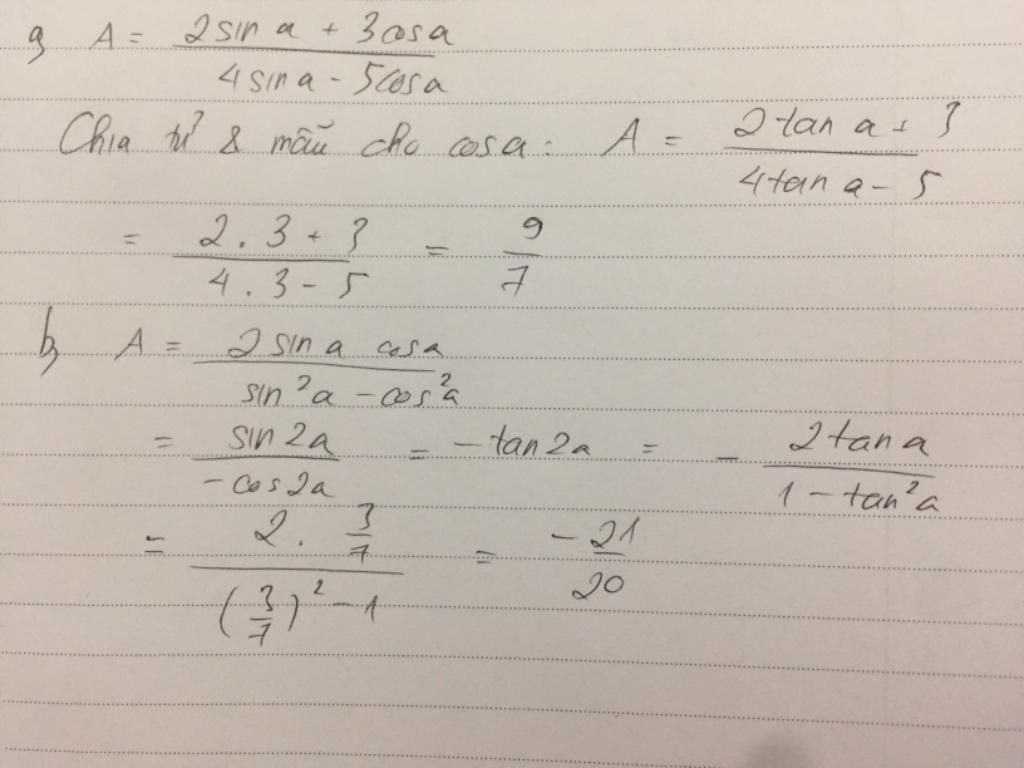 a, A = (2 sin a + 3 cos a) / (4 sin a - 5 cos a)
Chia tử & mẫu cho cos a: A = (2 tan a + 3) / (4 tan a - 5)
= (2 . 3 + 3) / (4 . 3 - 5) = 9/7
b, A = (2 sin a cos a) / (sin²a - cos²a)
= sin 2a / (-cos 2a) = -tan 2a = - (2 tan a) / (1 - tan²a)
= (2 . 3/7) / ((3/7)² - 1) = -21/20